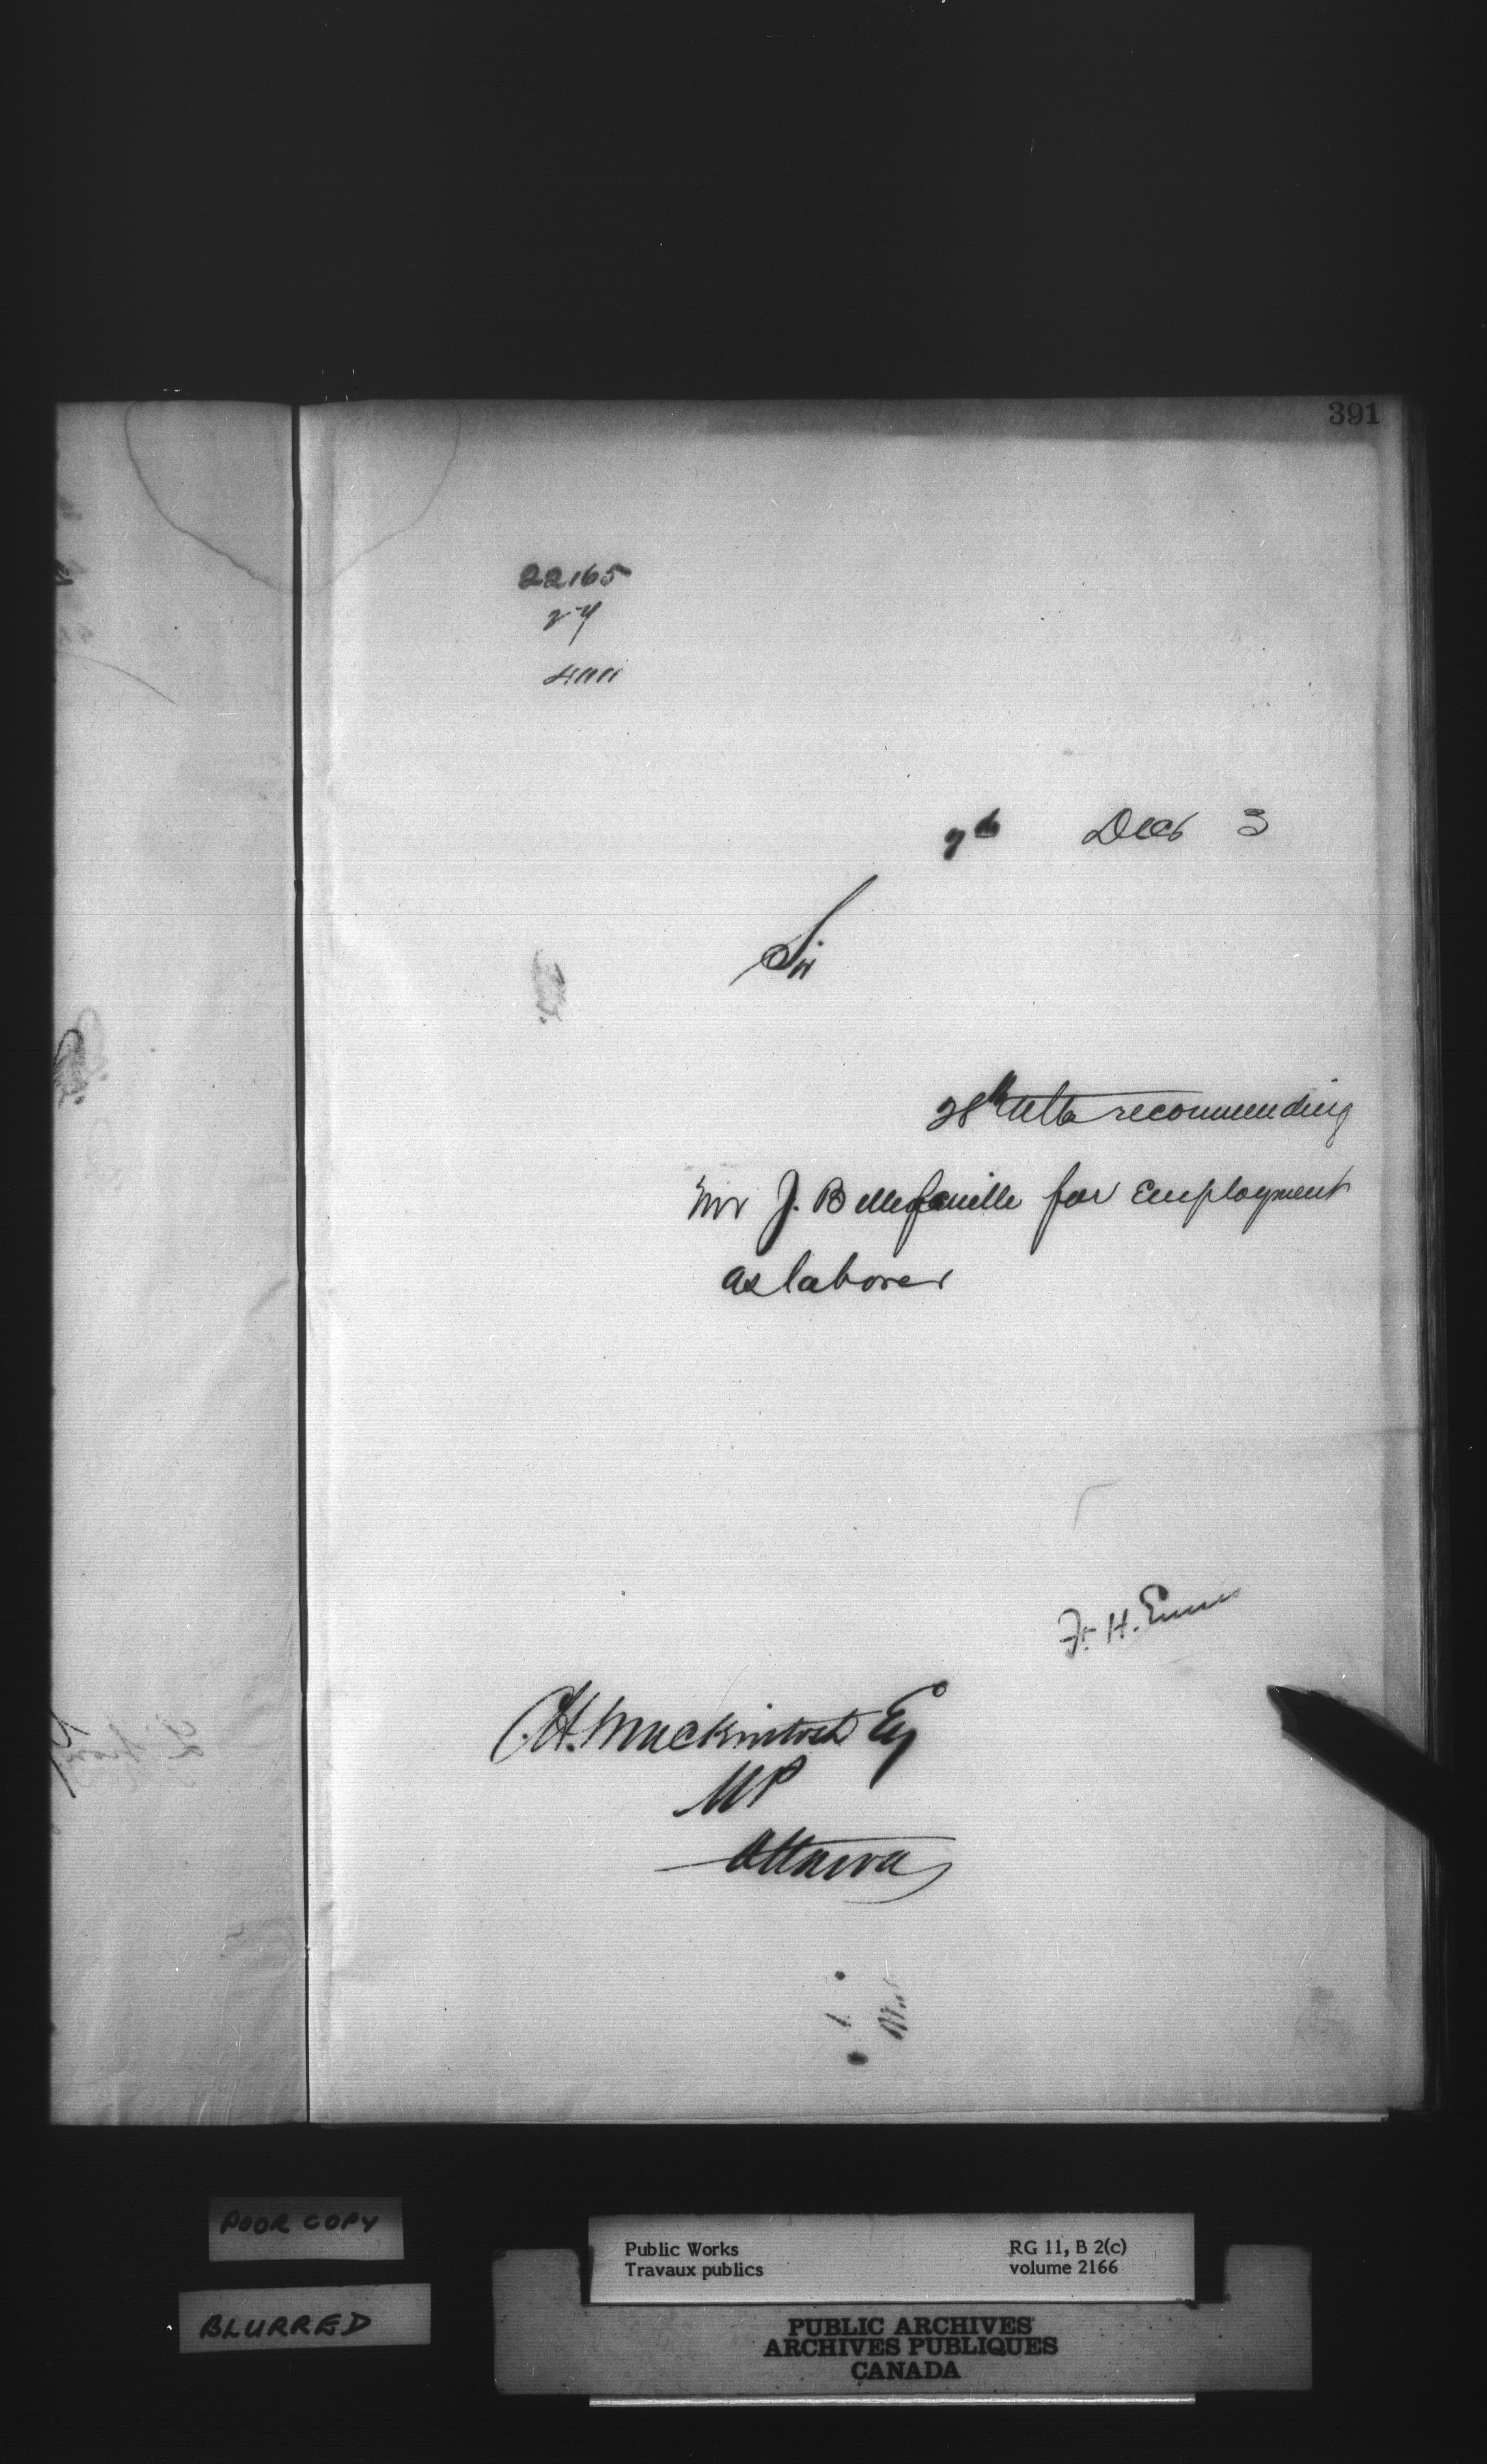 391
22165
Decb 3
Sir
28th ulto recommending
Mr J. Bellefeuille for employment
as laborer
F. H. Ennis
C.H. Mackintosh Esq
MP
Ottawa
POOR COPY
BLURRED
Public Works
Travaux publics
RG 11, B 2(c)
volume 2166
PUBLIC ARCHIVES
ARCHIVES PUBLIQUES
CANADA